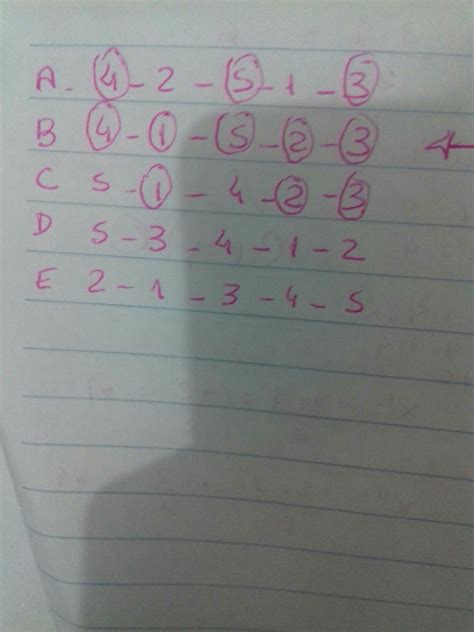 A - 4 - 2 - 5 - 1 - 3
B 4 - 1 - 5 - 2 - 3
C 5 - 1 - 4 - 2 - 3
D 5 - 3 - 4 - 1 - 2
E 2 - 1 - 3 - 4 - 5